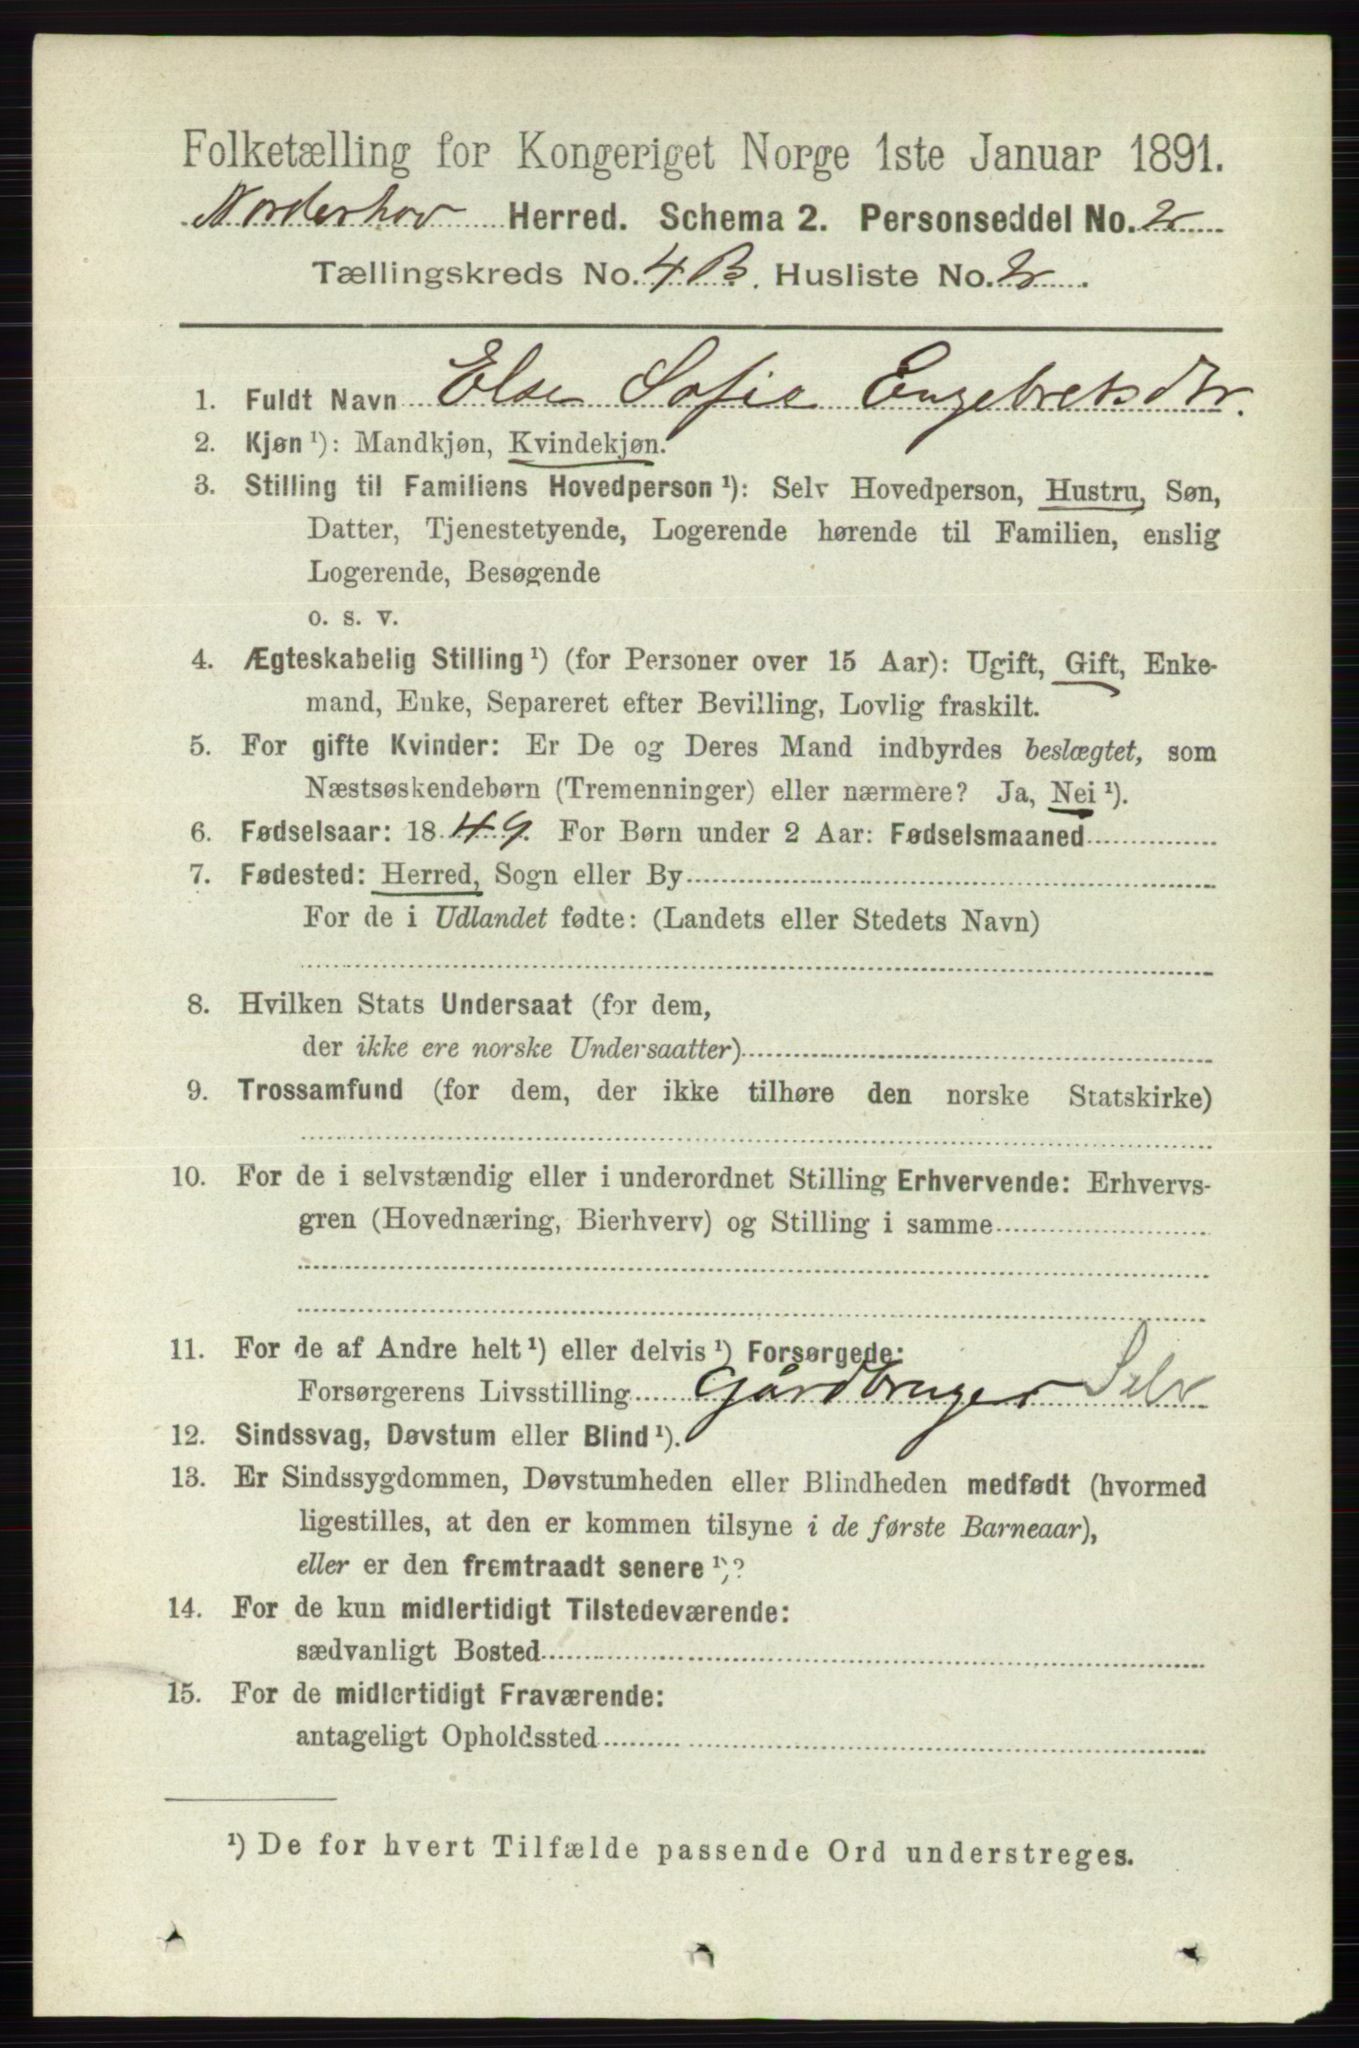 Folketælling for Kongeriget Norge 1ste Januar 1891.
Norderhov Herred. Schema 2. Personseddel No. 2
Tællingskreds No. 4 B. Husliste No. 2.
1. Fuldt Navn Else Sofie Engebretsdtr.
2. Kjøn ¹): Mandkjøn, Kvindekjøn.
3. Stilling til Familiens Hovedperson ¹): Selv Hovedperson, Hustru, Søn,
Datter, Tjenestetyende, Logerende hørende til Familien, enslig
Logerende, Besøgende
o. s. v.
4. Ægteskabelig Stilling ¹) (for Personer over 15 Aar): Ugift, Gift, Enke-
mand, Enke, Separeret efter Bevilling, Lovlig fraskilt.
5. For gifte Kvinder: Er De og Deres Mand indbyrdes beslægtet, som
Næstsøskendebørn (Tremenninger) eller nærmere? Ja, Nei ¹).
6. Fødselsaar: 1849. For Børn under 2 Aar: Fødselsmaaned
7. Fødested: Herred, Sogn eller By
For de i Udlandet fødte: (Landets eller Stedets Navn)
8. Hvilken Stats Undersaat (for dem,
der ikke ere norske Undersaatter)
9. Trossamfund (for dem, der ikke tilhøre den norske Statskirke)
10. For de i selvstændig eller i underordnet Stilling Erhvervende: Erhvervs-
gren (Hovednæring, Bierhverv) og Stilling i samme
11. For de af Andre helt ¹) eller delvis ¹) Forsørgede:
Forsørgerens Livsstilling Gårdbruger Selv
12. Sindssvag, Døvstum eller Blind ¹).
13. Er Sindssygdommen, Døvstumheden eller Blindheden medfødt (hvormed
ligestilles, at den er kommen tilsyne i de første Barneaar),
eller er den fremtraadt senere ¹)?
14. For de kun midlertidigt Tilstedeværende:
sædvanligt Bosted
15. For de midlertidigt Fraværende:
antageligt Opholdssted
¹) De for hvert Tilfælde passende Ord understreges.